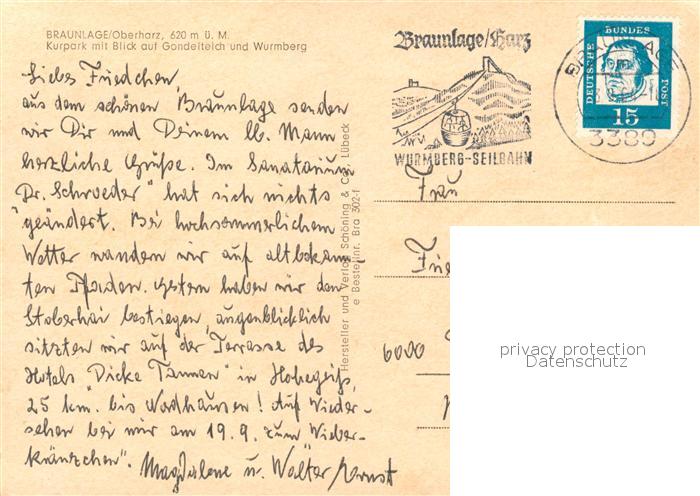 BRAUNLAGE/Oberharz, 620 m ü. M.
Kurpark mit Blick auf Gondelteich und Wurmberg
Liebes Friedchen,
aus dem schönen Braunlage senden
wir Dir und Deinem lb. Mann
herzliche Grüße. Im Sanatorium
Dr. Schroeder" hat sich nichts
geändert. Bei hochsommerlichem
Wetter wandern wir auf altbekann-
ten Pfaden. Gestern haben wir den
Stoberhai bestiegen, augenblicklich
sitzten wir auf der Terrasse des
Hotels "Dicke Tannen" in Hohegeiß,
25 km. bis! Auf Wieder-
sehen bei mir am 19.9. zum Wieber-
kränzchen". Magdalene u. Walter Ernst
Hersteller und Verlag Schöning & Co., Lübeck
Bestellnr. Bra 302-f
Braunlage/Harz
WURMBERG-SEILBAHN
DEUTSCHE BUNDES POST
15
3389
Frau
Frie
6000
privacy protection
Datenschutz